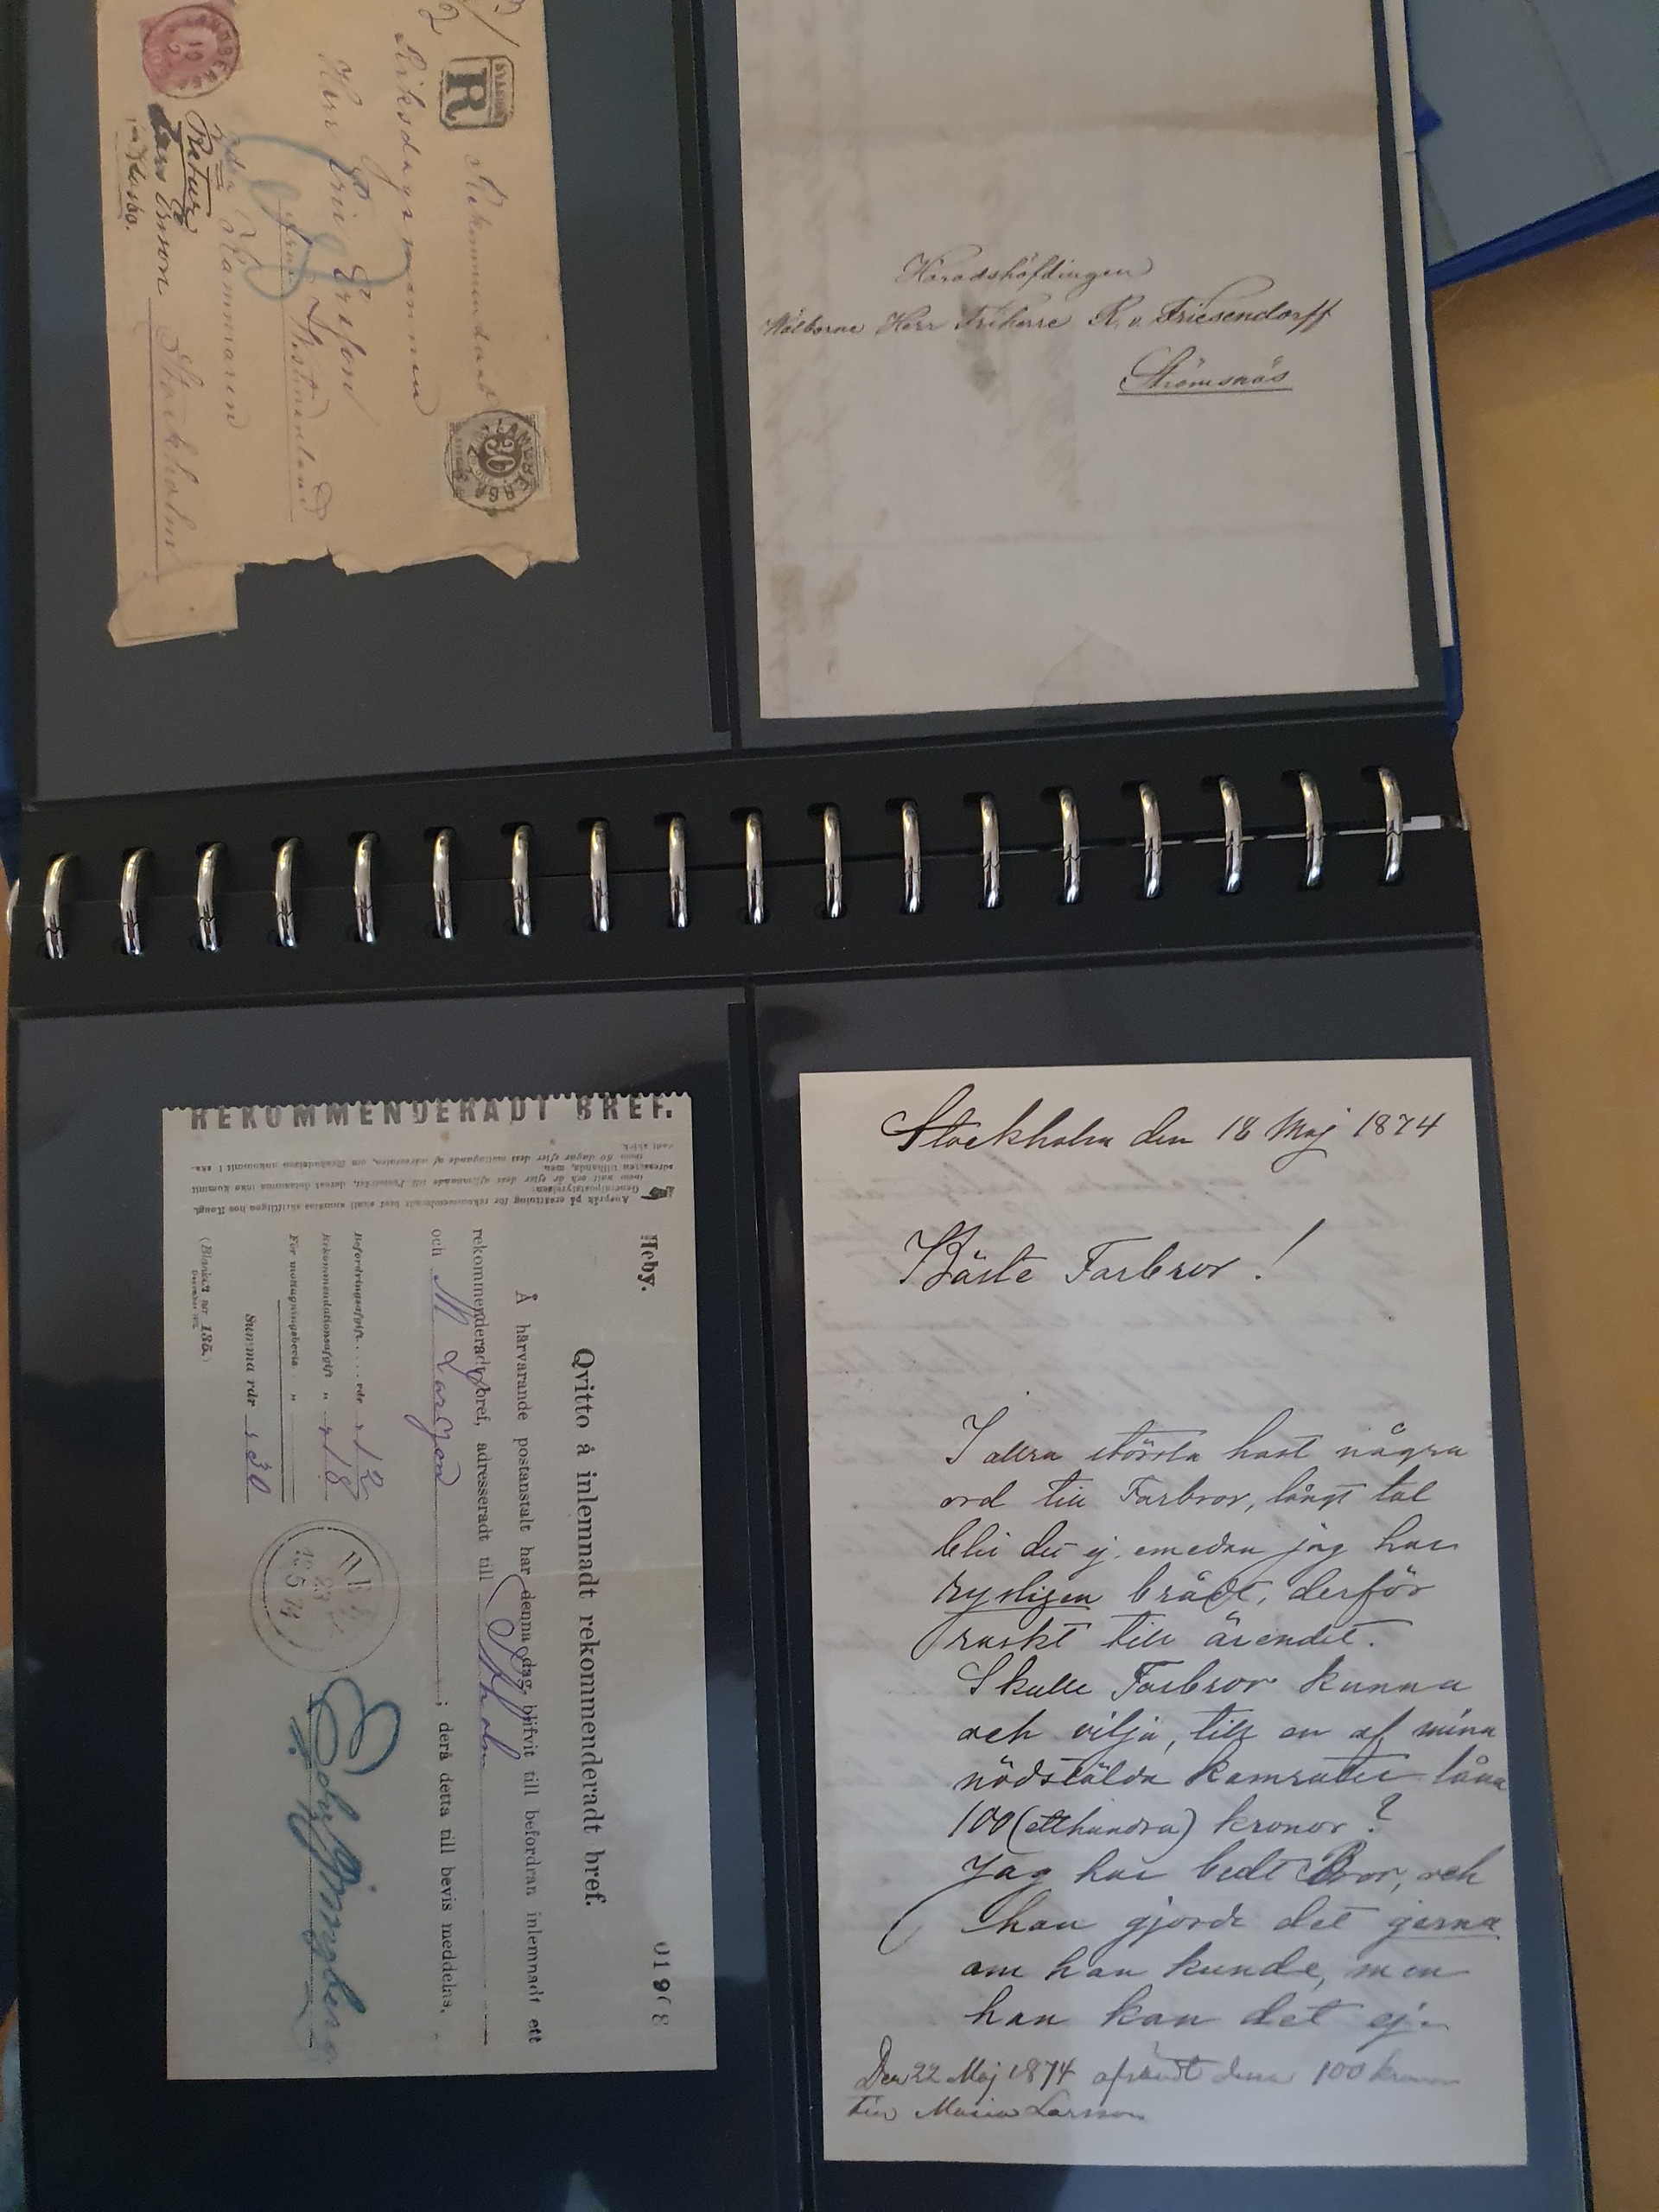 R
Rekommenderas
Riksdagsmannen
Herr Eric Ersson
från Vestmanland
2dra Kammaren
Stockholm
Retur
Lars Ersson
30
Häradshöfdingen
Wälborne Herr Friherre R. v. Friesendorff
Strömsnäs
REKOMMENDERADT BREF.
Anspråk på ersättning för rekommenderadt bref skall anmälas skriftligen hos Kongl.
Generalpoststyrelsen
Heby.
01908
Qvitto å inlemnadt rekommenderadt bref.
Å härvarande postanstalt har denna dag blifvit till befordran inlemnadt ett
rekommenderadt bref, adresseradt till Stholm
och M Larsson ; derå detta till bevis meddelas.
Befordringsafgift..... rdr 12
Rekommendationsafgift „ 18
För mottagningsbevis „
Summa rdr 30
(Blankett n:r 135.)
Stockholm den 18 Maj 1874
Bäste Farbror!
I allra största hast några
ord till Farbror, långt tal
blir det ej, emedan jag har
rysligen brådt, derför
raskt till ärendet.
Skulle Farbror kunna
och vilja, till en af mina
nödstälda kamrater låna
100 (etthundra) kronor?
Jag har bedt Bror, och
han gjorde det gerna
om han kunde, men
han kan det ej.
Den 22 Maj 1874 afsändt dessa 100 kronor
till Maria Larsson